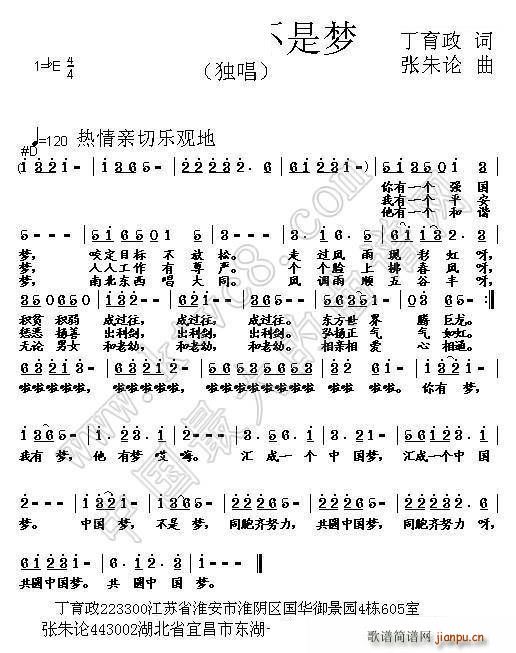 不是梦
（独唱）
丁育政 词
张朱论 曲
1=♭E 4/4
#D ♩=120 热情亲切乐观地
你有一个 强国
我有一个 平安
他有一个 和谐
梦， 咬定目标 不放松。 走过风雨现彩虹呀，
梦， 人人工作 有尊严。 个个脸上拂春风呀，
梦， 南北东西 唱大同。 风调雨顺五谷丰呀，
积贫积弱 成过往， 成过往， 东方世界 腾巨龙。
惩恶扬善 出利剑， 出利剑， 弘扬正气 气如虹。
无论男女 和老幼， 和老幼， 相亲相爱 心相通。
啦啦啦啦啦， 啦啦啦啦啦， 啦啦啦啦啦， 啦啦啦啦啦。 你有梦，
我有梦， 他有梦哎嗨。 汇成一个中国梦， 汇成一个中国
梦。 中国梦， 不是梦， 同胞齐努力， 共圆中国梦， 同胞齐努力呀，
共圆中国梦。 共圆中国梦。
丁育政223300江苏省淮安市淮阴区国华御景园4栋605室
张朱论443002湖北省宜昌市东湖-
歌谱简谱网
jianpu.cn